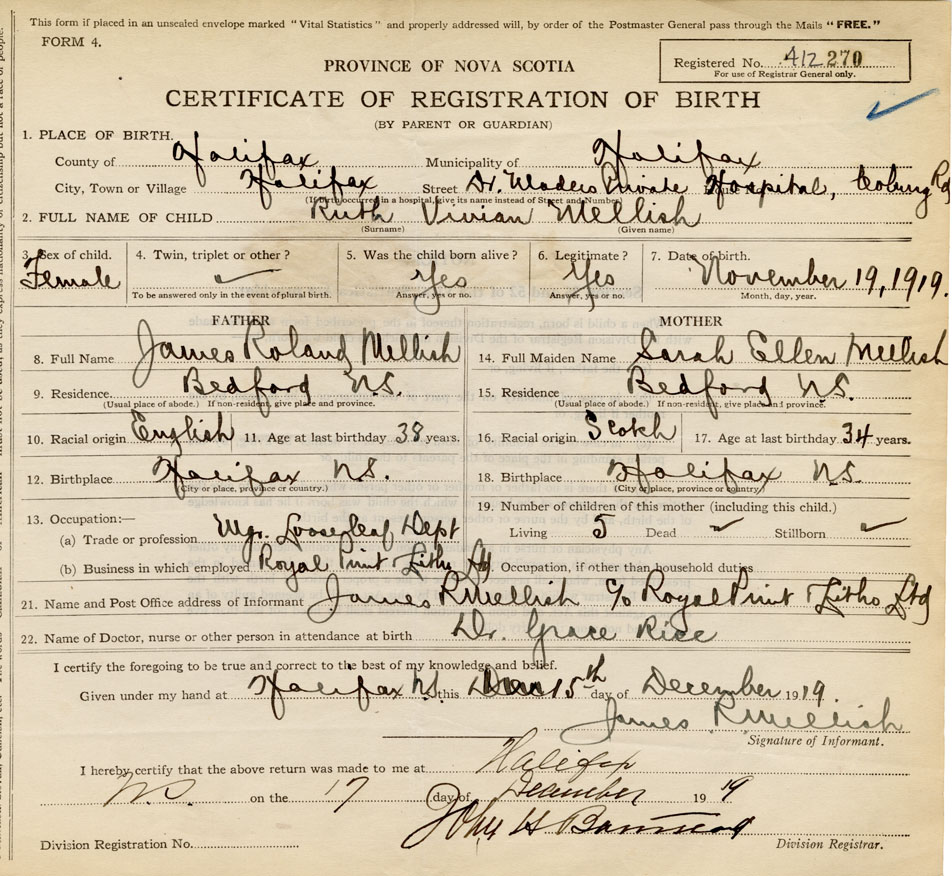 This form if placed in an unsealed envelope marked "Vital Statistics" and properly addressed will, by order of the Postmaster General pass through the Mails "FREE."
FORM 4.
Registered No. 412 270
For use of Registrar General only.
PROVINCE OF NOVA SCOTIA
CERTIFICATE OF REGISTRATION OF BIRTH
(BY PARENT OR GUARDIAN)
1. PLACE OF BIRTH.
County of Halifax Municipality of Halifax
City, Town or Village Halifax Street Dr. Waders Private Hospital, Coburg Rd
(If birth occurred in a hospital, give its name instead of Street and Number)
2. FULL NAME OF CHILD Ruth Vivian Mellish
(Surname) (Given name)
3. Sex of child. 4. Twin, triplet or other? 5. Was the child born alive? 6. Legitimate? 7. Date of birth.
Female Yes Yes November 19, 1919.
To be answered only in the event of plural birth. Answer, yes or no. Answer, yes or no. Month, day, year.
FATHER MOTHER
8. Full Name James Roland Mellish 14. Full Maiden Name Sarah Ellen Mellish
9. Residence. Bedford N.S. 15. Residence. Bedford N.S.
(Usual place of abode.) If non-resident, give place and province. (Usual place of abode.) If non-resident, give place and province.
10. Racial origin English 11. Age at last birthday 38 years. 16. Racial origin Scotch 17. Age at last birthday 34 years.
12. Birthplace Halifax N.S. 18. Birthplace Halifax N.S.
(City or place, province or country.) (City or place, province or country)
19. Number of children of this mother (including this child.)
13. Occupation:—
(a) Trade or profession Mgr. Looseleaf Dept Living 5 Dead Stillborn
(b) Business in which employed Royal Print & Litho Ltd Occupation, if other than household duties
21. Name and Post Office address of Informant James R Mellish c/o Royal Print & Litho Ltd
22. Name of Doctor, nurse or other person in attendance at birth Dr. Grace Rice
I certify the foregoing to be true and correct to the best of my knowledge and belief.
Given under my hand at Halifax N.S. this 15th day of December 1919
James R Mellish
Signature of Informant.
I hereby certify that the above return was made to me at Halifax
N.S. on the 17 day of December 1919
John H
Division Registration No. Division Registrar.